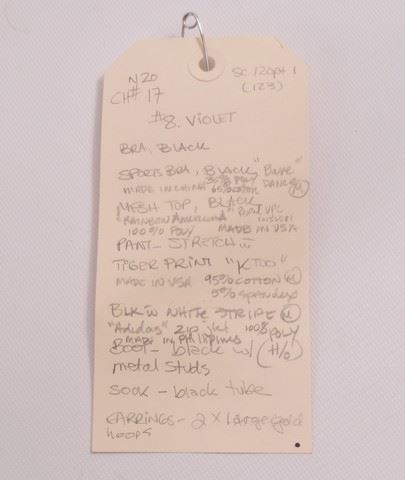 N20
CH# 17
SC 120pt 1
(123)
#8. VIOLET
BRA, BLACK
SPORTS BRA, BLACK, "Bare"
35% POLY
MADE IN CHINA 65% COTTON DANCE M
MESH TOP, BLACK
"RAINBOW AMERICANA"
100% POLY MADE IN USA
PANT - STRETCH
TIGER PRINT "K TOO"
MADE IN USA 95% COTTON M
5% Spandex
BLK W WHITE STRIPE M
"Adidas" zip jkt 100% POLY
MADE IN PHILIPINES
BOOT - black w/ (H/O)
metal Studs
SOCK - black tube
EARRINGS - 2 x Large gold
hoops